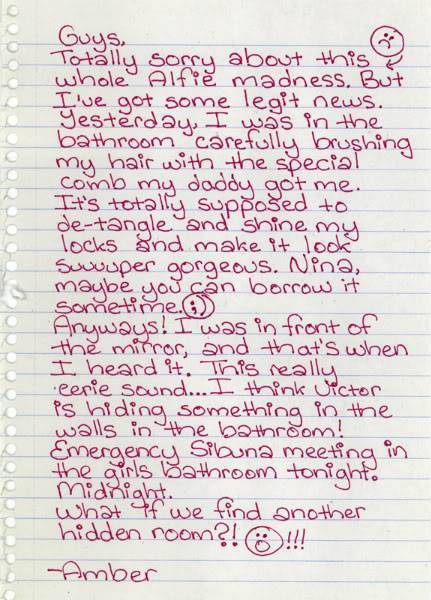 Guys,
Totally sorry about this
whole Alfie madness. But
I've got some legit news.
Yesterday, I was in the
bathroom carefully brushing
my hair with the special
comb my daddy got me.
It's totally supposed to
de-tangle and shine my
locks and make it look
suuuuper gorgeous. Nina,
maybe you can borrow it
sometime.
Anyways! I was in front of
the mirror, and that's when
I heard it. This really
eerie sound... I think Victor
is hiding something in the
walls in the bathroom!
Emergency Sibuna meeting in
the girls bathroom tonight.
Midnight.
What if we find another
hidden room?! !!!
-Amber